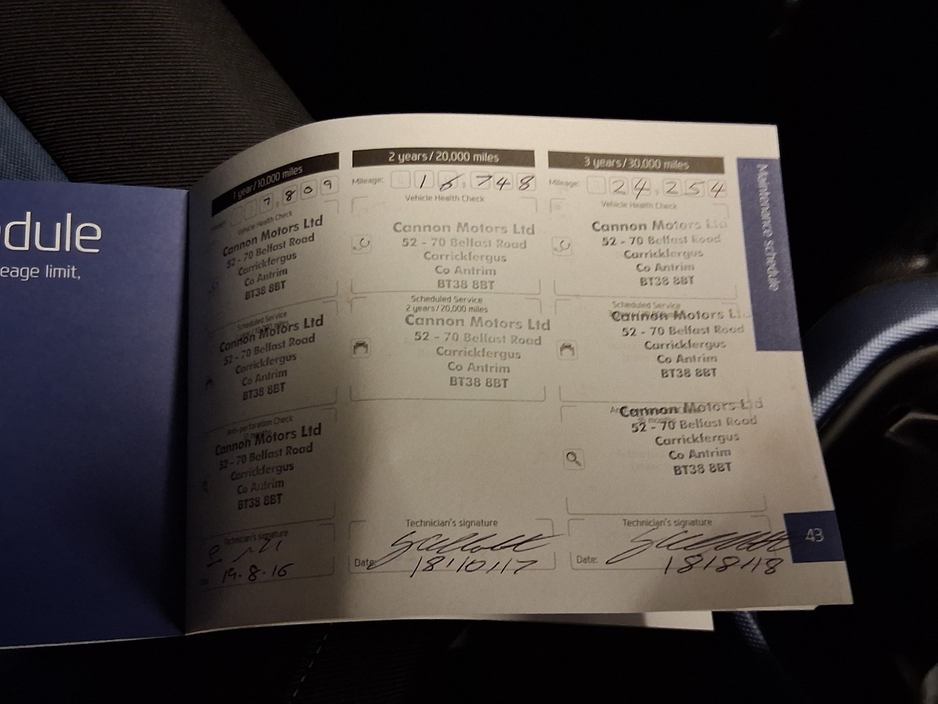 edule
eage limit,
1 year/10,000 miles
7,809
Vehicle Health Check
Cannon Motors Ltd
52 - 70 Belfast Road
Carrickfergus
Co Antrim
BT38 8BT
Cannon Motors Ltd
52 - 70 Belfast Road
Carrickfergus
Co Antrim
BT38 8BT
Anti-perforation Check
Cannon Motors Ltd
52 - 70 Belfast Road
Carrickfergus
Co Antrim
BT38 8BT
Technician's signature
19.8.16
2 years/20,000 miles
Mileage: 16,748
Vehicle Health Check
Cannon Motors Ltd
52 - 70 Belfast Road
Carrickfergus
Co Antrim
BT38 8BT
Scheduled Service
2 years/20,000 miles
Cannon Motors Ltd
52 - 70 Belfast Road
Carrickfergus
Co Antrim
BT38 8BT
Technician's signature
Date: 18/10/17
3 years/30,000 miles
Mileage: 24,254
Vehicle Health Check
Cannon Motors Ltd
52 - 70 Belfast Road
Carrickfergus
Co Antrim
BT38 8BT
Scheduled Service
Cannon Motors Ltd
52 - 70 Belfast Road
Carrickfergus
Co Antrim
BT38 8BT
Cannon Motors Ltd
52 - 70 Belfast Road
Carrickfergus
Co Antrim
BT38 8BT
Technician's signature
Date: 18/8/18
Maintenance schedule
43